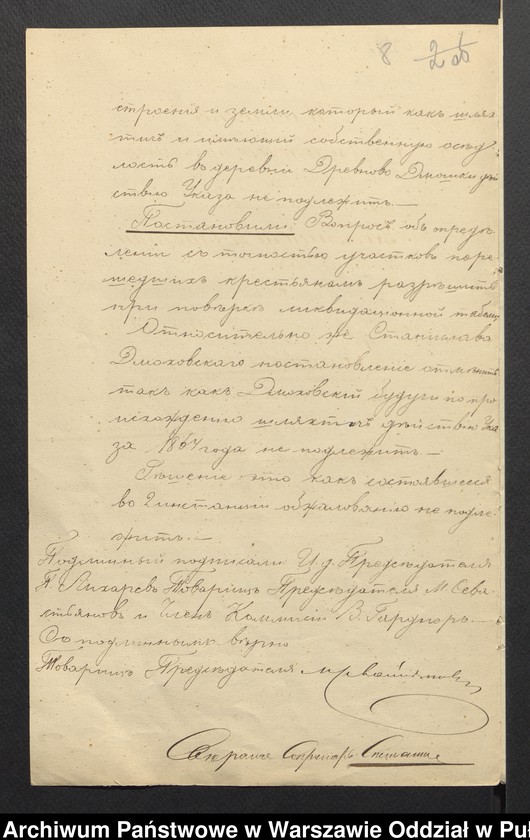 8
строенія и земли, который какъ шлях
тичъ и имѣющій собственную осѣд
лость въ деревни Древново Дмошки дѣй
ствію Указа не подлежитъ. —
Постановили: Вопросъ объ опредѣ
леніи съ точностью участковъ пере
шедшихъ крестьянамъ разрѣшить
при повѣркѣ ликвидаціонной табели.
Относительно же Станислава
Дмоховскаго постановленіе отмѣнить
такъ какъ Дмоховскій будучи по про
исхожденію шляхтичъ дѣйствію Ука
за 1864 года не подлежитъ —
Рѣшеніе это какъ состоявшееся
во 2 инстанціи обжалованію не подле
житъ. —
Подлинный подписали И. д. Предсѣдателя
П. Лихаревъ Товарищъ Предсѣдателя М. Сева
стьяновъ и Членъ Коммисіи В. Гарднеръ —
Съ подлиннымъ вѣрно
Товарищъ Предсѣдателя
Archiwum Państwowe w Warszawie Oddział w Pu